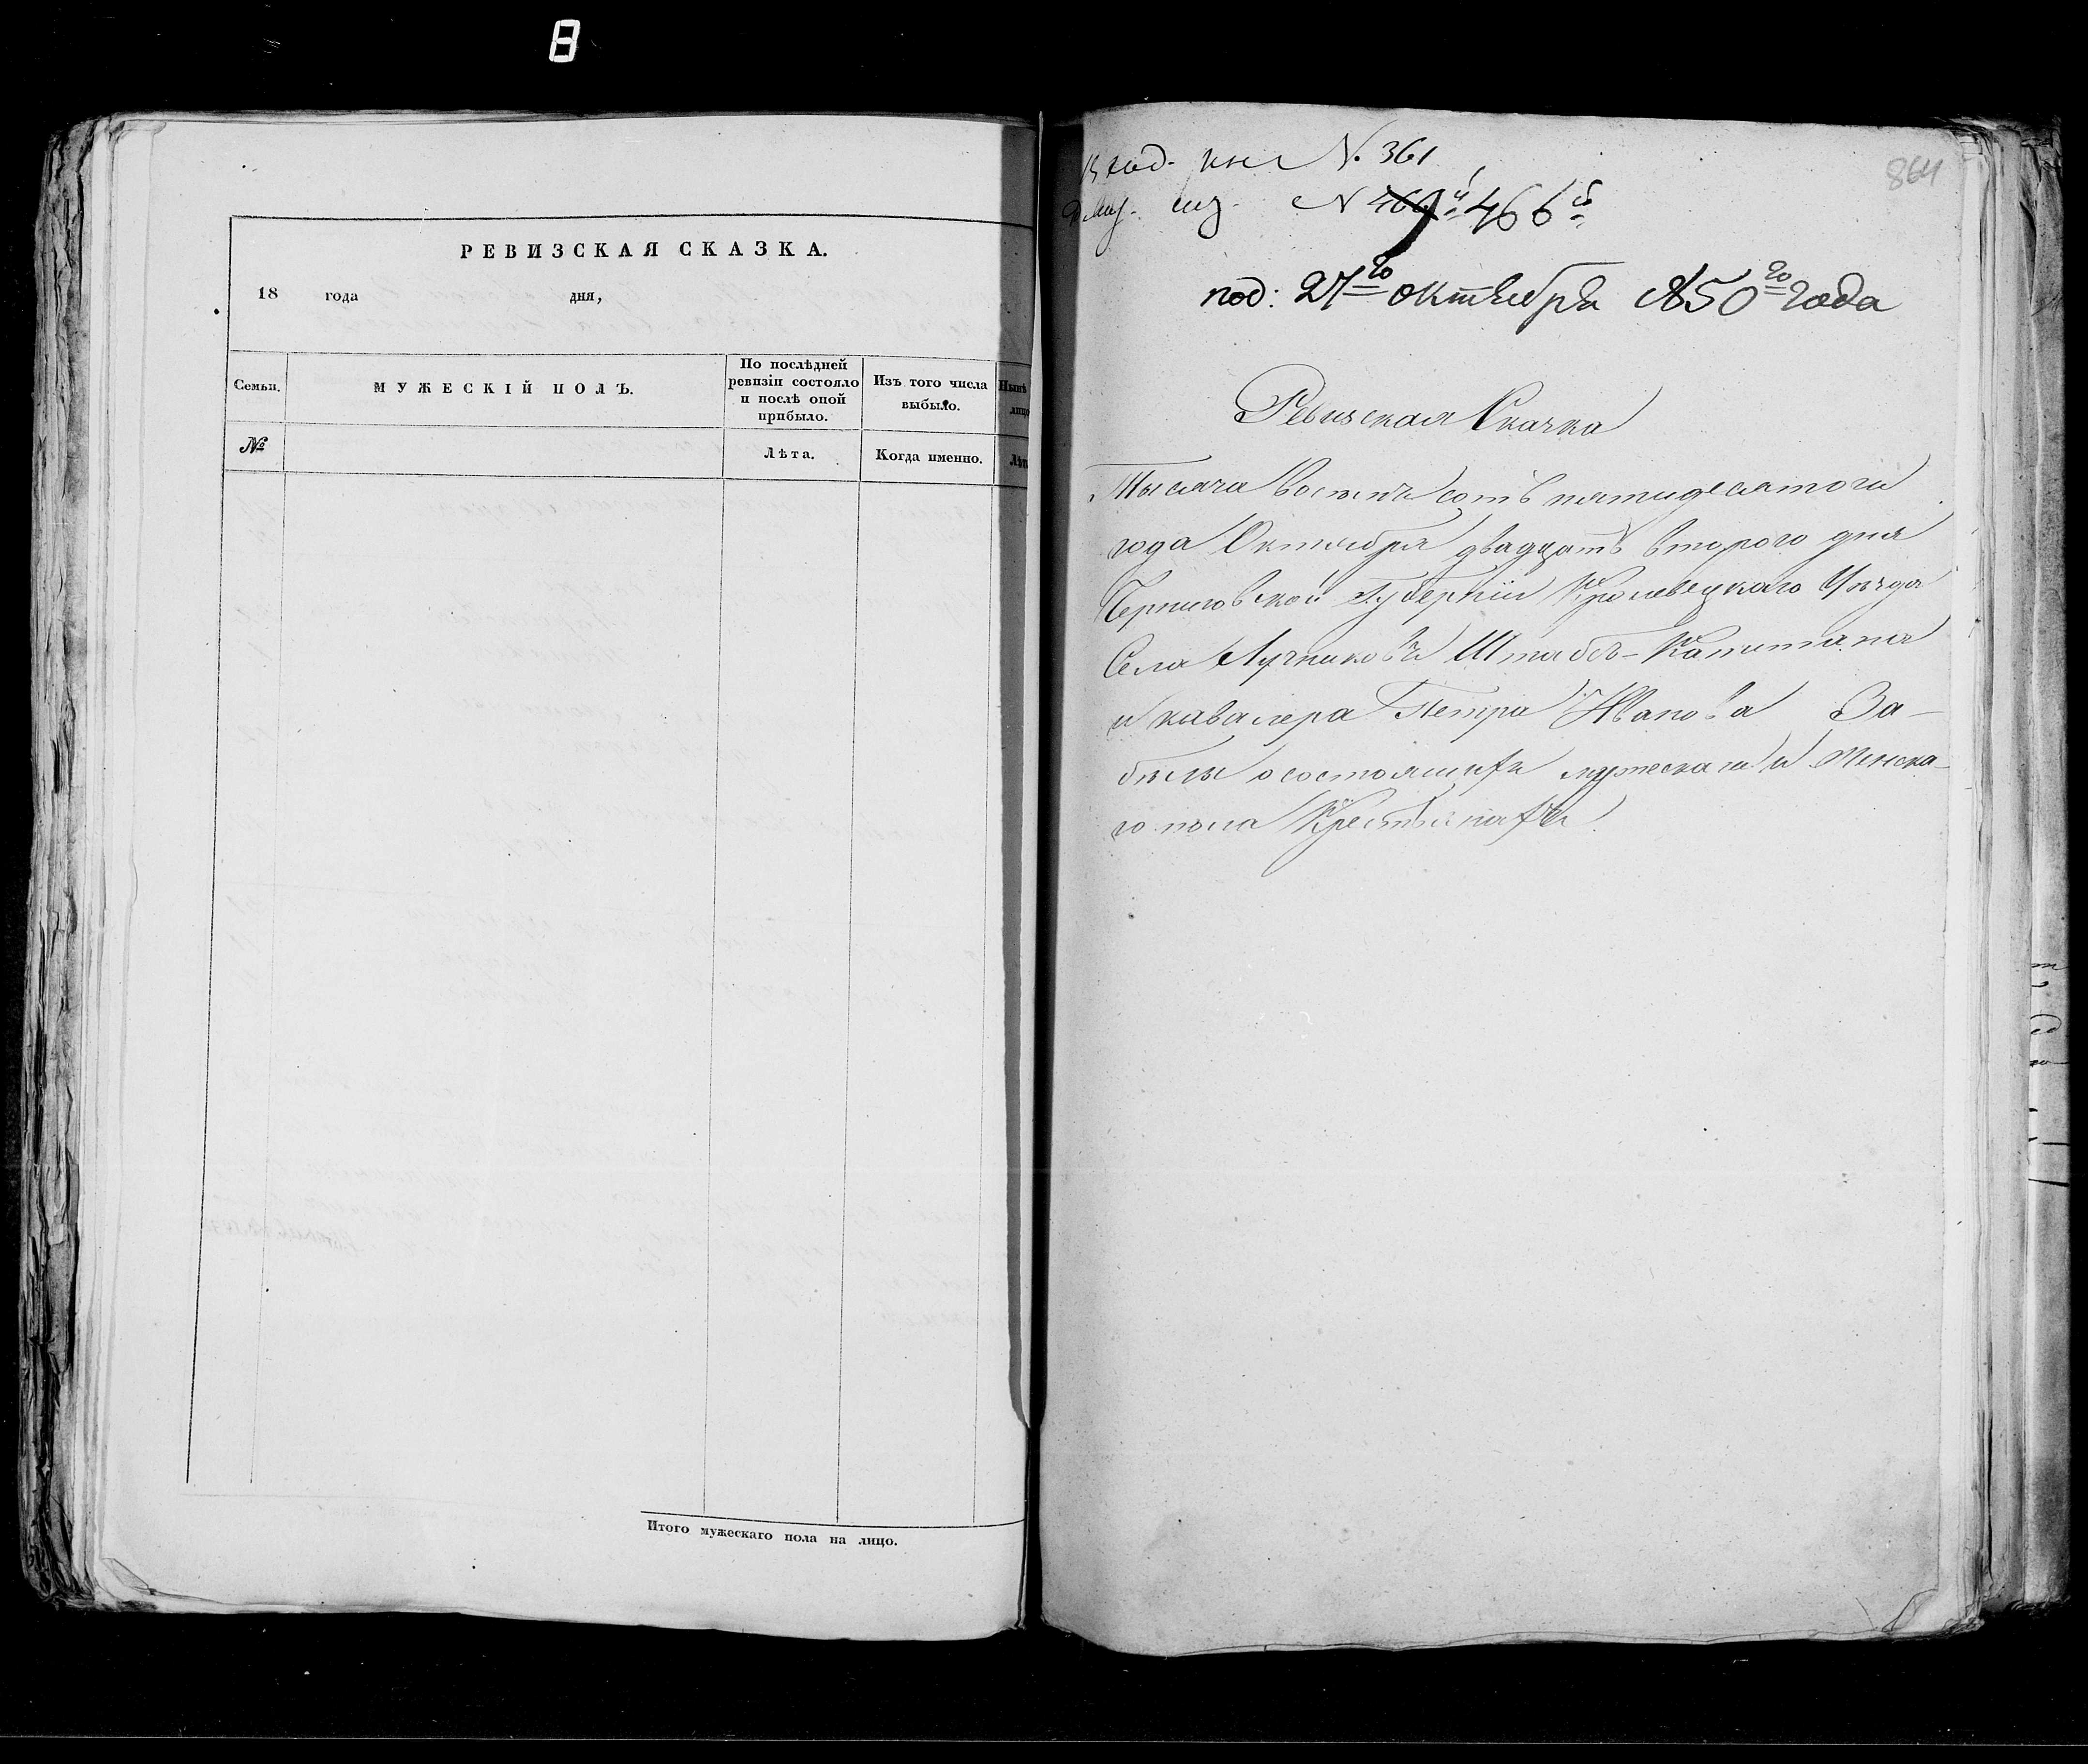 8
РЕВИЗСКАЯ СКАЗКА.
18 года дня,
Семьи.
МУЖЕСКІЙ ПОЛЪ.
По послѣдней ревизіи состояло и послѣ оной прибыло.
Изъ того числа выбыло.
Нынѣ
лицо
№
Лѣта.
Когда именно.
Лѣт
Итого мужескаго пола на лицо.
864
Вход. кни N. 361
N 466й
под: 27го октября 1850го года
Ревизская Сказка
Тысяча восемь сотъ пятидесятого
года Октября двадцать второго дня
Черниговской Губерніи Кролевецкаго Уѣзда
Села Лучниковъ Штабсъ-Капитана
и кавалера Петра Иванова За-
бѣлы о состоящихъ мужескаго и Женска-
го пола Крестьянахъ